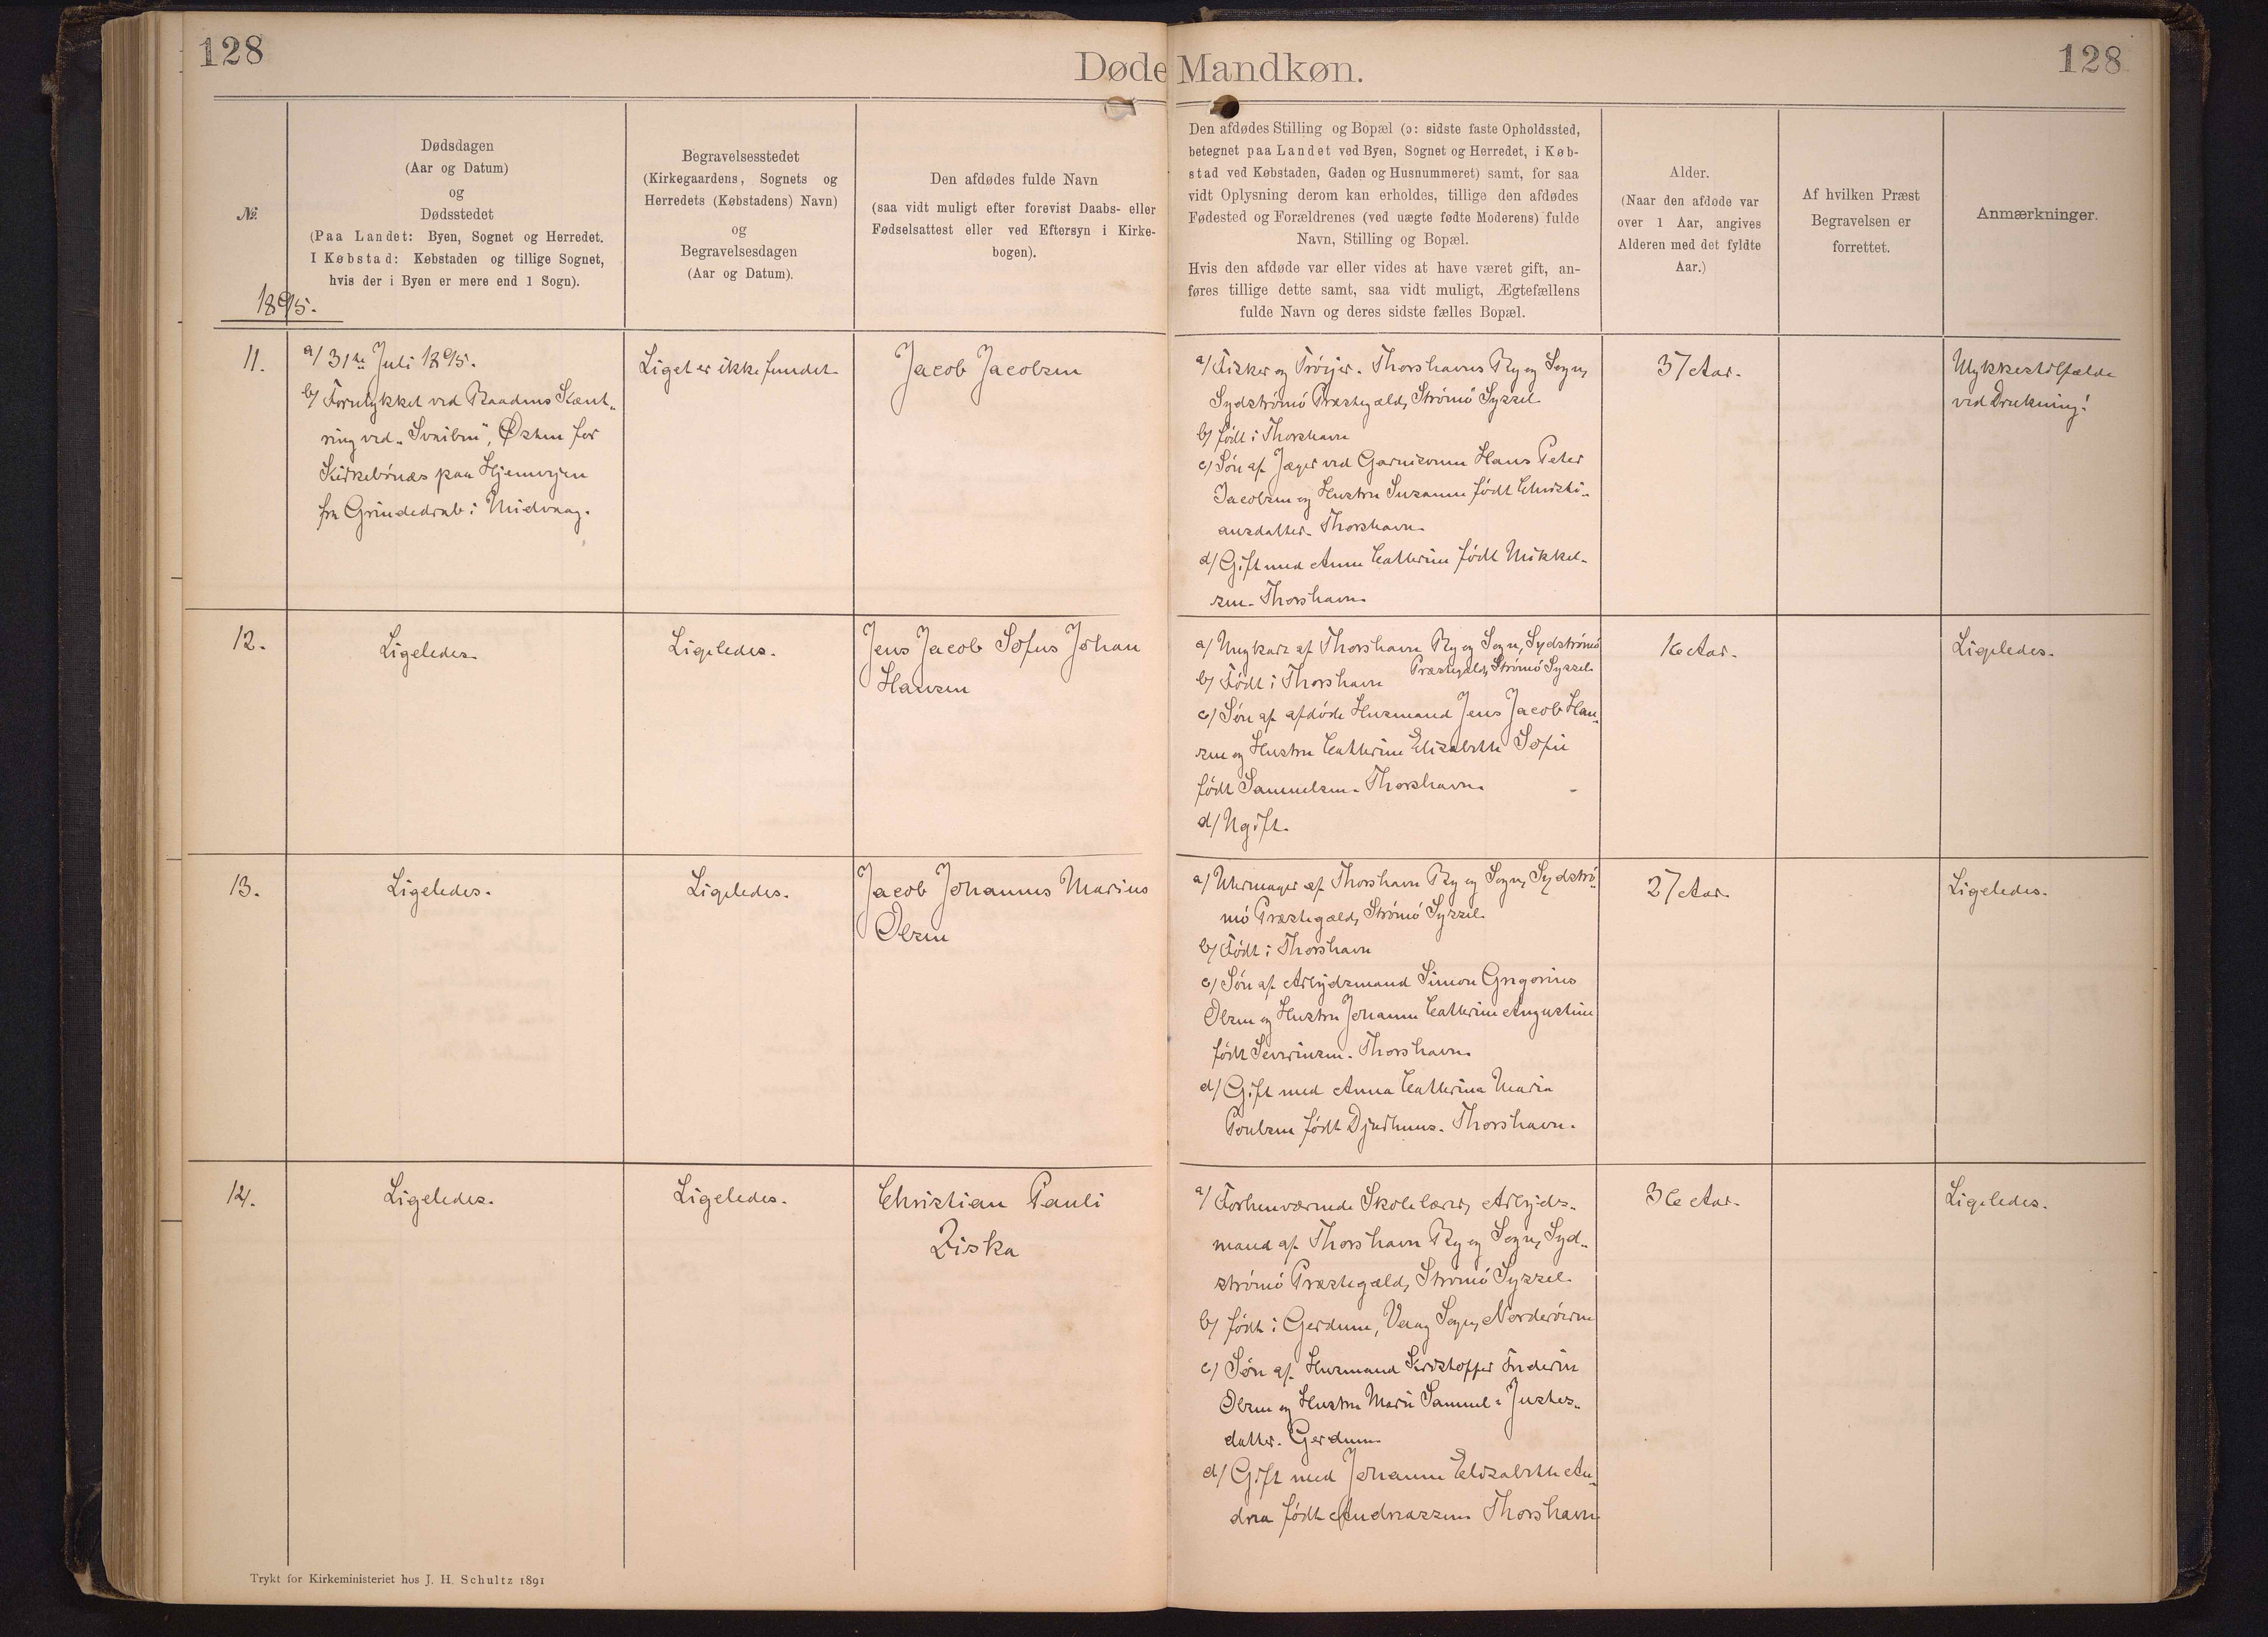 128
Døde Mandkøn.
128
№
Dødsdagen
(Aar og Datum)
og
Dødsstedet
(Paa Landet: Byen, Sognet og Herredet.
I Købstad: Købstaden og tillige Sognet,
hvis der i Byen er mere end 1 Sogn).
Begravelsesstedet
(Kirkegaardens, Sognets og
Herredets (Købstadens) Navn)
og
Begravelsesdagen
(Aar og Datum).
Den afdødes fulde Navn
(saa vidt muligt efter forevist Daabs- eller
Fødselsattest eller ved Eftersyn i Kirke-
bogen).
Den afdødes Stilling og Bopæl (ɔ: sidste faste Opholdssted,
betegnet paa Landet ved Byen, Sognet og Herredet, i Køb-
stad ved Købstaden, Gaden og Husnummeret) samt, for saa
vidt Oplysning derom kan erholdes, tillige den afdødes
Fødested og Forældrenes (ved uægte fødte Moderens) fulde
Navn, Stilling og Bopæl.
Hvis den afdøde var eller vides at have været gift, an-
føres tillige dette samt, saa vidt muligt, Ægtefællens
fulde Navn og deres sidste fælles Bopæl.
Alder.
(Naar den afdøde var
over 1 Aar, angives
Alderen med det fyldte
Aar.)
Af hvilken Præst
Begravelsen er
forrettet.
Anmærkninger.
1895.
11.
a/ 31te Juli 1895.
b/ Forulykket ved Baadens Kænt-
ring ved "Sneiben", Østen for
Kirkebönæs paa Hjemvejen
fra Grindedrab i Midvaag.
Liget er ikke fundet.
Jacob Jacobsen
a/ Fisker og Tröijer. Thorshavns By og Sogn,
Sydströmö Præstegæld, Strömö Syssel.
b/ født i Thorshavn
c/ Søn af Jæger ved Garnisonen Hans Peter
Jacobsen og Hustru Susanne født Christi-
ansdatter. Thorshavn.
d/ Gift med Anne Catherine født Mikkel-
sen. Thorshavn.
37 Aar.
Ulykkestilfælde
ved Drukning!
12.
Ligeledes.
Ligeledes.
Jens Jacob Sofus Johan
Hansen
a/ Ungkarl af Thorshavn By og Sogn, Sydströmö
Præstegæld, Strömö Syssel.
b/ Født i Thorshavn
c/ Søn af afdöde Husmand Jens Jacob Han-
sen og Hustru Catherine Elisabeth Sofie
født Samuelsen. Thorshavn.
d/ Ugift.
16 Aar.
Ligeledes.
13.
Ligeledes.
Ligeledes.
Jacob Johannes Marius
Olsen
a/ Uhrmager af Thorshavn By og Sogn, Sydströ-
mö Præstegæld, Strömö Syssel.
b/ Født i Thorshavn
c/ Søn af Arbejdsmand Simon Gregorius
Olsen og Hustru Johanne Catherine Augustine
født Severinsen. Thorshavn.
d/ Gift med Anna Catherina Maria
Poulsen født Djurhuus. Thorshavn.
27 Aar.
Ligeledes.
14.
Ligeledes.
Ligeledes.
Christian Pauli
Ziska
a/ Forhenværende Skolelærer, Arbejds-
mand af Thorshavn By og Sogn, Syd-
strömö Præstegæld, Strömö Syssel.
b/ født i Gerdum, Vaag Sogn, Norderöerne
c/ Søn af Husmand Kristoffer Frederik
Olsen og Hustru Marie Samuel = Justes-
datter. Gerdum.
d/ Gift med Johanne Elisabeth An-
drea født Andreassen. Thorshavn.
36 Aar.
Ligeledes.
Trykt for Kirkeministeriet hos J. H. Schultz 1891